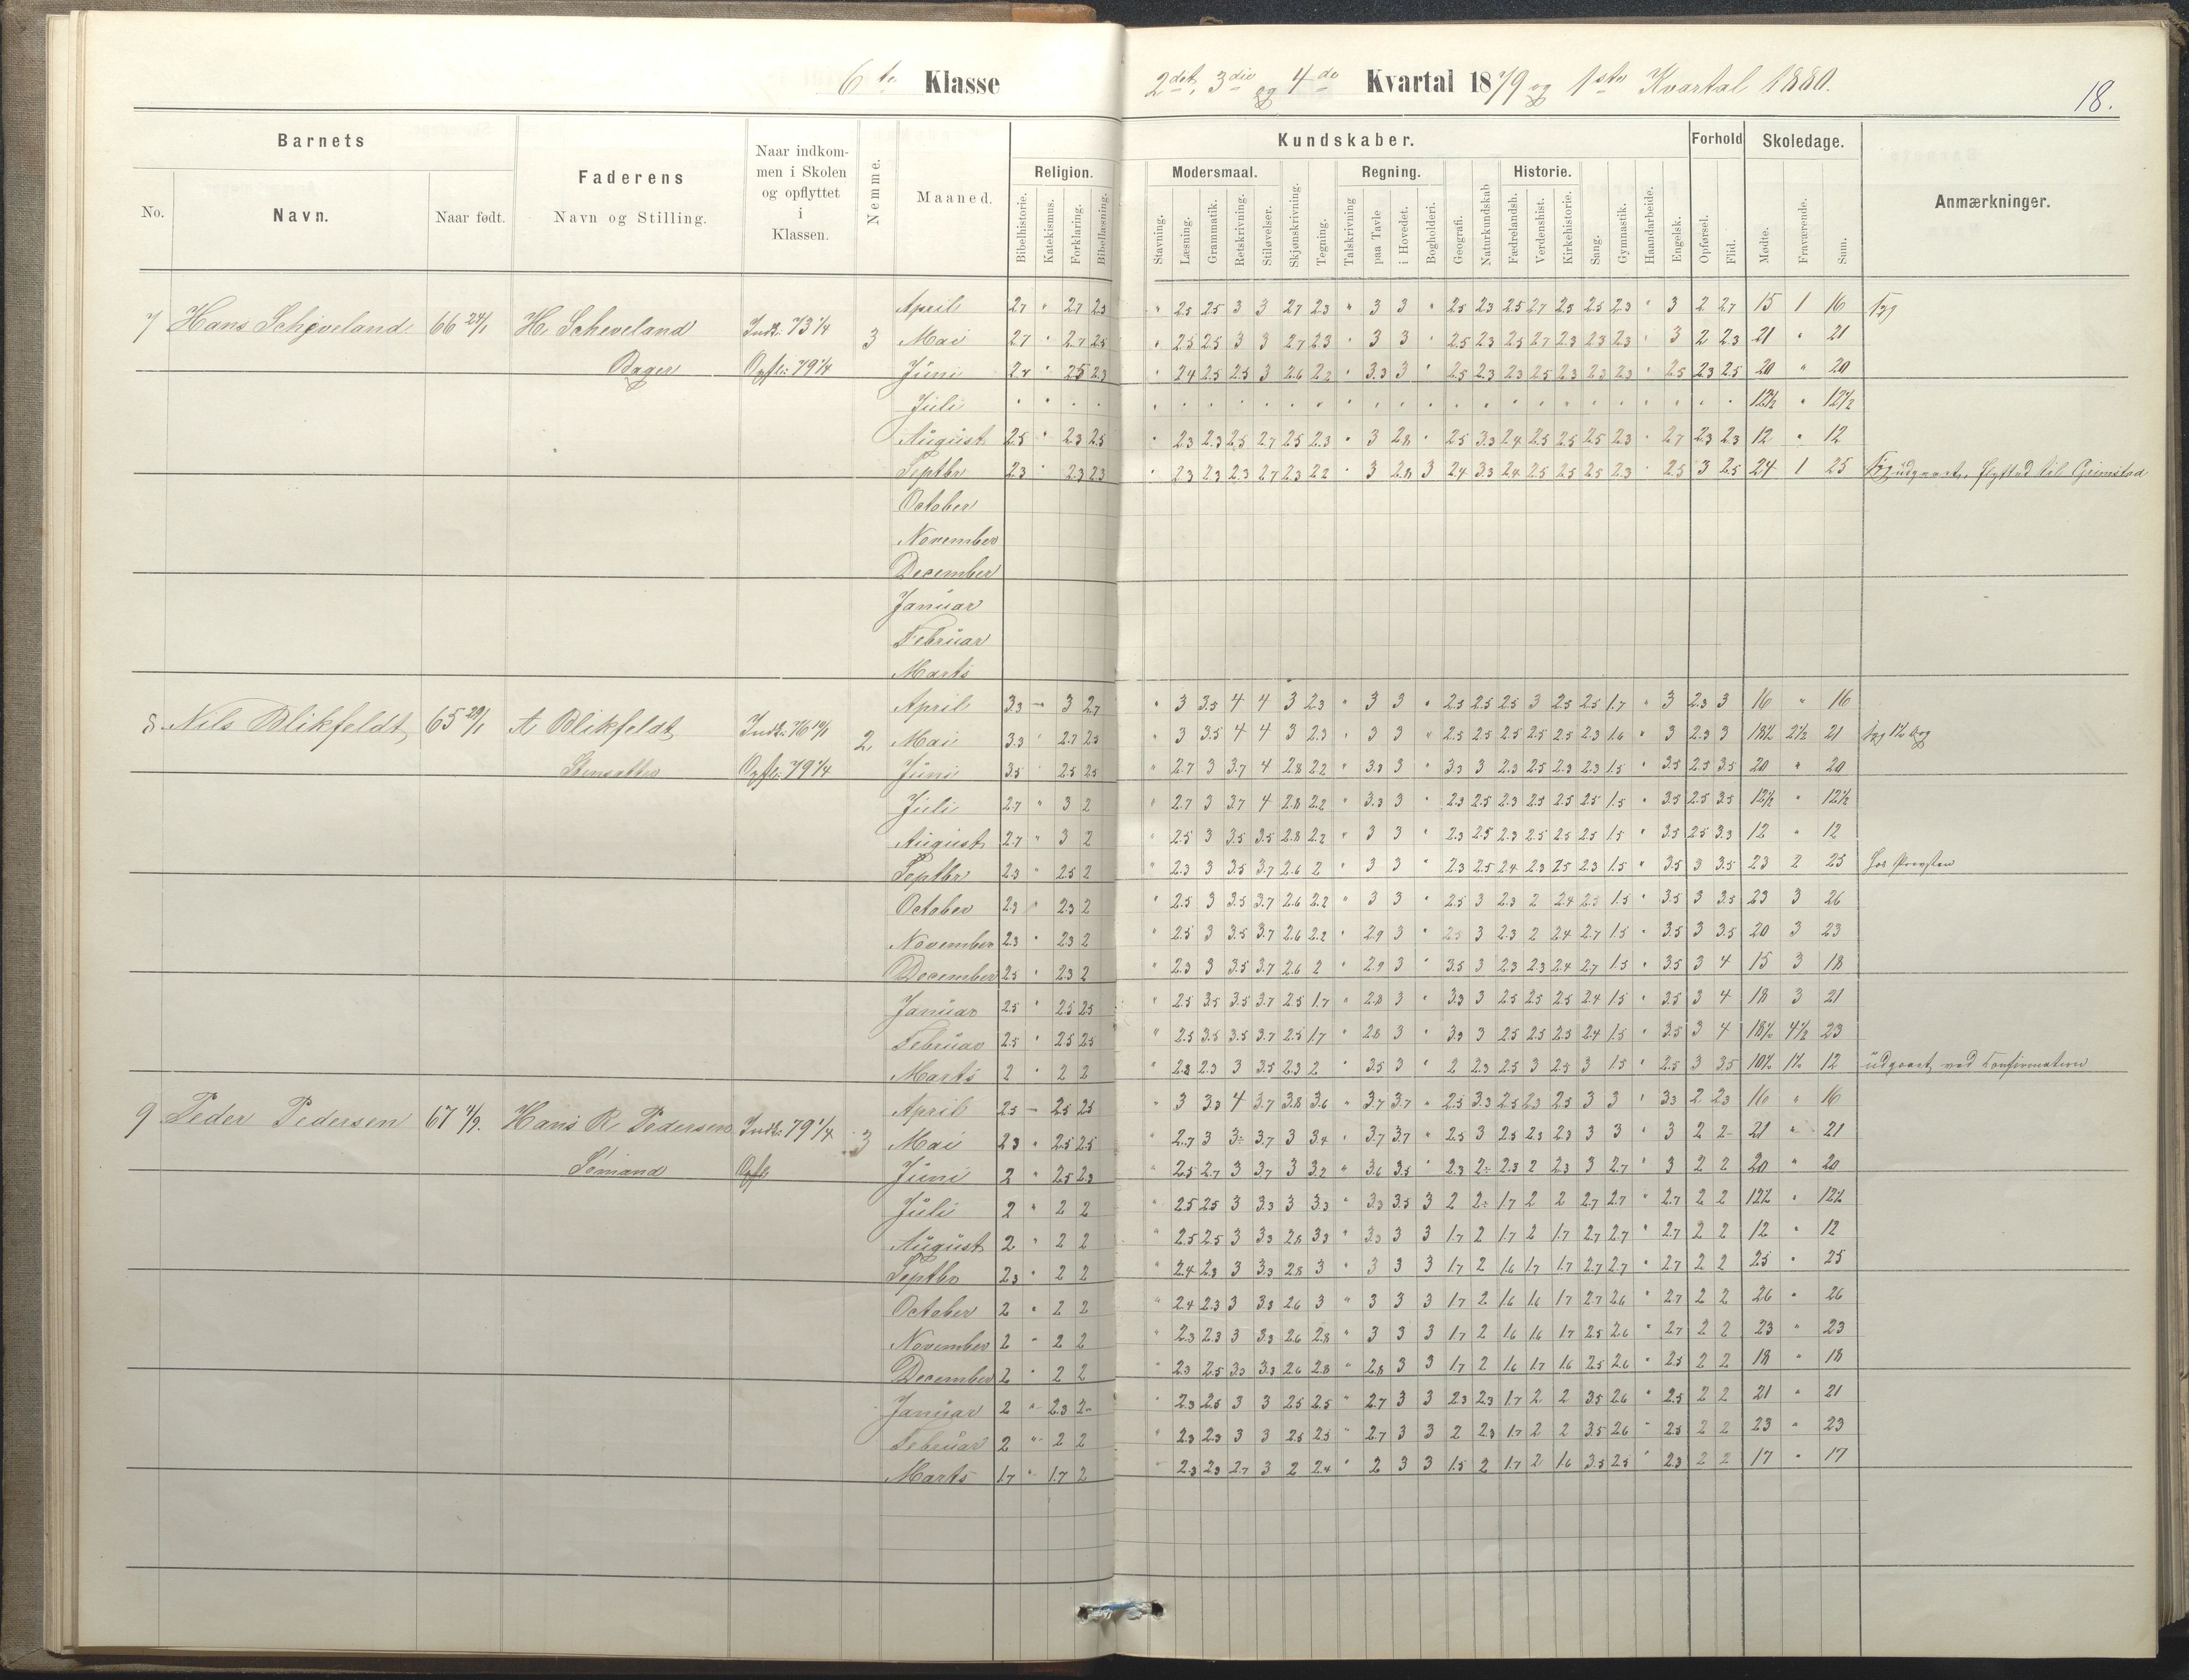 6te Klasse
2det, 3die og 4de Kvartal 1879 og 1ste Kvartal 1880.
18.
Barnets
No.
Navn.
Naar født.
Faderens
Navn og Stilling.
Naar indkom-
men i Skolen
og opflyttet
i
Klassen.
Nemme.
Maaned.
Kundskaber.
Religion.
Bibelhistorie.
Katekismus.
Forklaring.
Bibellæsning.
Modersmaal.
Stavning.
Læsning.
Grammatik.
Retskrivning.
Stiløvelser.
Skjønskrivning.
Tegning.
Regning.
Talskrivning
paa Tavle
i Hovedet.
Bogholderi.
Geografi.
Naturkundskab
Historie.
Fædrelandsh.
Verdenshist.
Kirkehistorie.
Sang.
Gymnastik.
Haandarbeide.
Engelsk.
Forhold
Opførsel.
Flid.
Skoledage.
Mødte.
Fraværende.
Sum.
Anmærkninger.
7 Hans Scheveland 66 24/1 H. Scheveland Indk: 73 1/4 3
Bager Opfl: 79 1/4
April 2.7 " 2.7 2.3 " 2.5 2.5 3 3 2.7 2.3 " 3 3 " 2.5 2.3 2.5 2.7 2.3 2.5 2.3 " 3 2 2.7 15 1 16 syg
Mai 2.7 " 2.7 2.5 " 2.5 2.5 3 3 2.7 2.3 " 3 3 " 2.5 2.3 2.5 2.7 2.3 2.3 2.3 " 3 2 2.3 21 " 21
Juni 2.7 " 2.5 2.3 " 2.4 2.5 2.5 3 2.6 2.2 " 3.3 3 " 2.5 2.3 2.3 2.5 2.3 2.3 2.3 " 2.5 2.3 2.5 20 " 20
Juli 12 1/2 " 12 1/2
August 2.5 " 2.3 2.5 " 2.3 2.3 2.5 2.7 2.5 2.3 " 3 2.8 " 2.5 3.3 2.4 2.5 2.5 2.5 2.3 " 2.7 2.3 2.3 12 " 12
Septbr 2.3 " 2.3 2.3 " 2.3 2.3 2.3 2.7 2.3 2.2 " 3 2.8 3 2.4 3.3 2.4 2.5 2.5 2.5 2.3 " 2.5 3 2.5 24 1 25 Syg udgaaet, flyttet til Grimstad
October
November
December
Januar
Februar
Marts
8 Nils Blikfeldt 65 29/1 A. Blikfeldt Indk: 76 10/1 2
Opfl: 79 1/4
April 3.3 — 3 2.7 " 3 3.5 4 4 3 2.3 " 3 3 " 2.5 2.5 2.5 3 2.5 2.5 1.7 " 3 2.3 3 16 " 16
Mai 3.3 " 2.7 2.5 " 3 3.5 4 4 3 2.3 " 3 3 " 2.5 2.5 2.5 2.5 2.5 2.3 1.6 " 3 2.3 3 18 1/2 2 1/2 21 syg 1 1/2 Dag
Juni 3.5 " 2.5 2.5 " 2.7 3 3.7 4 2.8 2.2 " 3.3 3 " 3.3 3 2.3 2.5 2.3 2.3 1.5 " 3.5 2.5 3.5 20 " 20
Juli 2.7 " 3 2 " 2.7 3 3.7 4 2.8 2.2 " 3.3 3 " 2.3 2.5 2.3 2.5 2.5 2.5 1.5 " 3.5 2.5 3.5 12 1/2 " 12 1/2
August 2.7 " 3 2 " 2.5 3 3.5 3.5 2.8 2.2 " 3 3 " 2.3 2.5 2.3 2.5 2.5 2.5 1.5 " 3.5 2.5 3.3 12 " 12
Septbr 2.3 " 2.5 2 " 2.3 3 3.5 3.7 2.6 2 " 3 3 " 2.3 2.5 2.4 2.3 2.5 2.3 1.5 " 3.5 3 3.5 23 2 25 hos Provsten
October 2.3 " 2.3 2 " 2.5 3 3.5 3.7 2.6 2.2 " 3 3 " 2.5 3 2.3 2 2.4 2.5 1.5 " 3.5 3 3.5 23 3 26
November 2.3 " 2.3 2 " 2.5 3 3.5 3.7 2.6 2.2 " 2.9 3 " 2.5 3 2.3 2 2.4 2.7 1.5 " 3.5 3 3.5 20 3 23
December 2.5 " 2.3 2 " 2.3 3 3.5 3.7 2.6 2 " 2.9 3 " 3.5 3 2.3 2.3 2.4 2.7 1.5 " 3.5 3 4 15 3 18
Januar 2.5 " 2.5 2.5 " 2.5 3.5 3.5 3.7 2.5 1.7 " 2.8 3 " 3.3 3 2.5 2.5 2.5 2.4 1.5 " 3.5 3 4 18 3 21
Februar 2.5 " 2.5 2.5 " 2.5 3.5 3.5 3.7 2.5 1.7 " 2.8 3 " 3.3 3 2.5 2.5 2.5 2.4 1.5 " 3.5 3 4 18 1/2 4 1/2 23
Marts 2 " 2 2 " 2.8 2.3 3 3.5 2.3 2 " 3.5 3 " 2 2.3 2.5 3 2.5 3 1.5 " 2.5 3 3.5 10 1/2 1 1/2 12 udgaaet ved Konfirmation
9 Peder Pedersen 67 4/9. Hans R. Pedersen Indk: 79 1/4 3
Sømand Opfl
April 2.5 — 2.5 2.5 " 3 3.3 4 3.7 3.8 3.6 " 3.7 3.7 " 2.5 3.3 2.5 2.3 2.5 3 3 " 3.3 2 2.3 16 " 16
Mai 2.3 " 2.5 2.5 " 2.7 3 3÷ 3.7 3 3.4 " 3.7 3.7 " 2.5 3 2.5 2.3 2.3 3 3 " 3 2 2- 21 " 21
Juni 2 " 2.5 2.3 " 2.5 2.7 3 3.7 3 3.2 " 3.6 3.5 " 2.3 2÷ 2.3 2 2.3 3 2.7 " 3 2 2 20 " 20
Juli 2 " 2 2 " 2.5 2.5 3 3.3 3 3.3 " 3.3 3.5 3 2 2÷ 1.7 2 2 2.7 2.7 " 2.7 2 2 12 1/2 " 12 1/2
August 2 " 2 2 " 2.5 2.5 3 3.3 2.8 3.3 " 3.3 3 3 1.7 2 1.7 2 1.7 2.7 2.7 " 2.7 2 2 12 " 12
Septbr 2.3 " 2 2 " 2.4 2.3 3 3.3 2.8 3 " 3 3 3 1.7 2 1.6 1.7 1.7 2.7 2.7 " 2.7 2 2 25 " 25
October 2 " 2 2 " 2.4 2.3 3 3.3 2.6 3 " 3 3 3 1.7 2 1.6 1.6 1.7 2.7 2.6 " 2.7 2 2 26 " 26
November 2 " 2 2 " 2.3 2.3 3 3.3 2.6 2.8 " 3 3 3 1.7 2 1.6 1.6 1.7 2.5 2.6 " 2.7 2 2 23 " 23
December 2 " 2 2 " 2.3 2.5 3.3 3.3 2.6 2.8 " 2.8 3 3 1.7 2 1.6 1.7 1.6 2.5 2.6 " 2.5 2 2 18 " 18
Januar 2 " 2.3 2- " 2.3 2.5 3 3 2.5 2.5 " 2.7 3 3 2.3 2.3 1.7 2 2 3.5 2.6 " 2.5 2 2 21 " 21
Februar 2 " 2 2 " 2.3 2.3 3 3 2.5 2.5 " 2.7 3 3 2 2.3 1.7 2 2 3.5 2.6 " 2.5 2 2 23 " 23
Marts 1.7 " 1.7 2 " 2.3 2.3 2.7 3 2 2.4 " 2 3 3 1.5 2 1.7 2 1.6 3.5 2.5 " 2.3 2 2 17 " 17